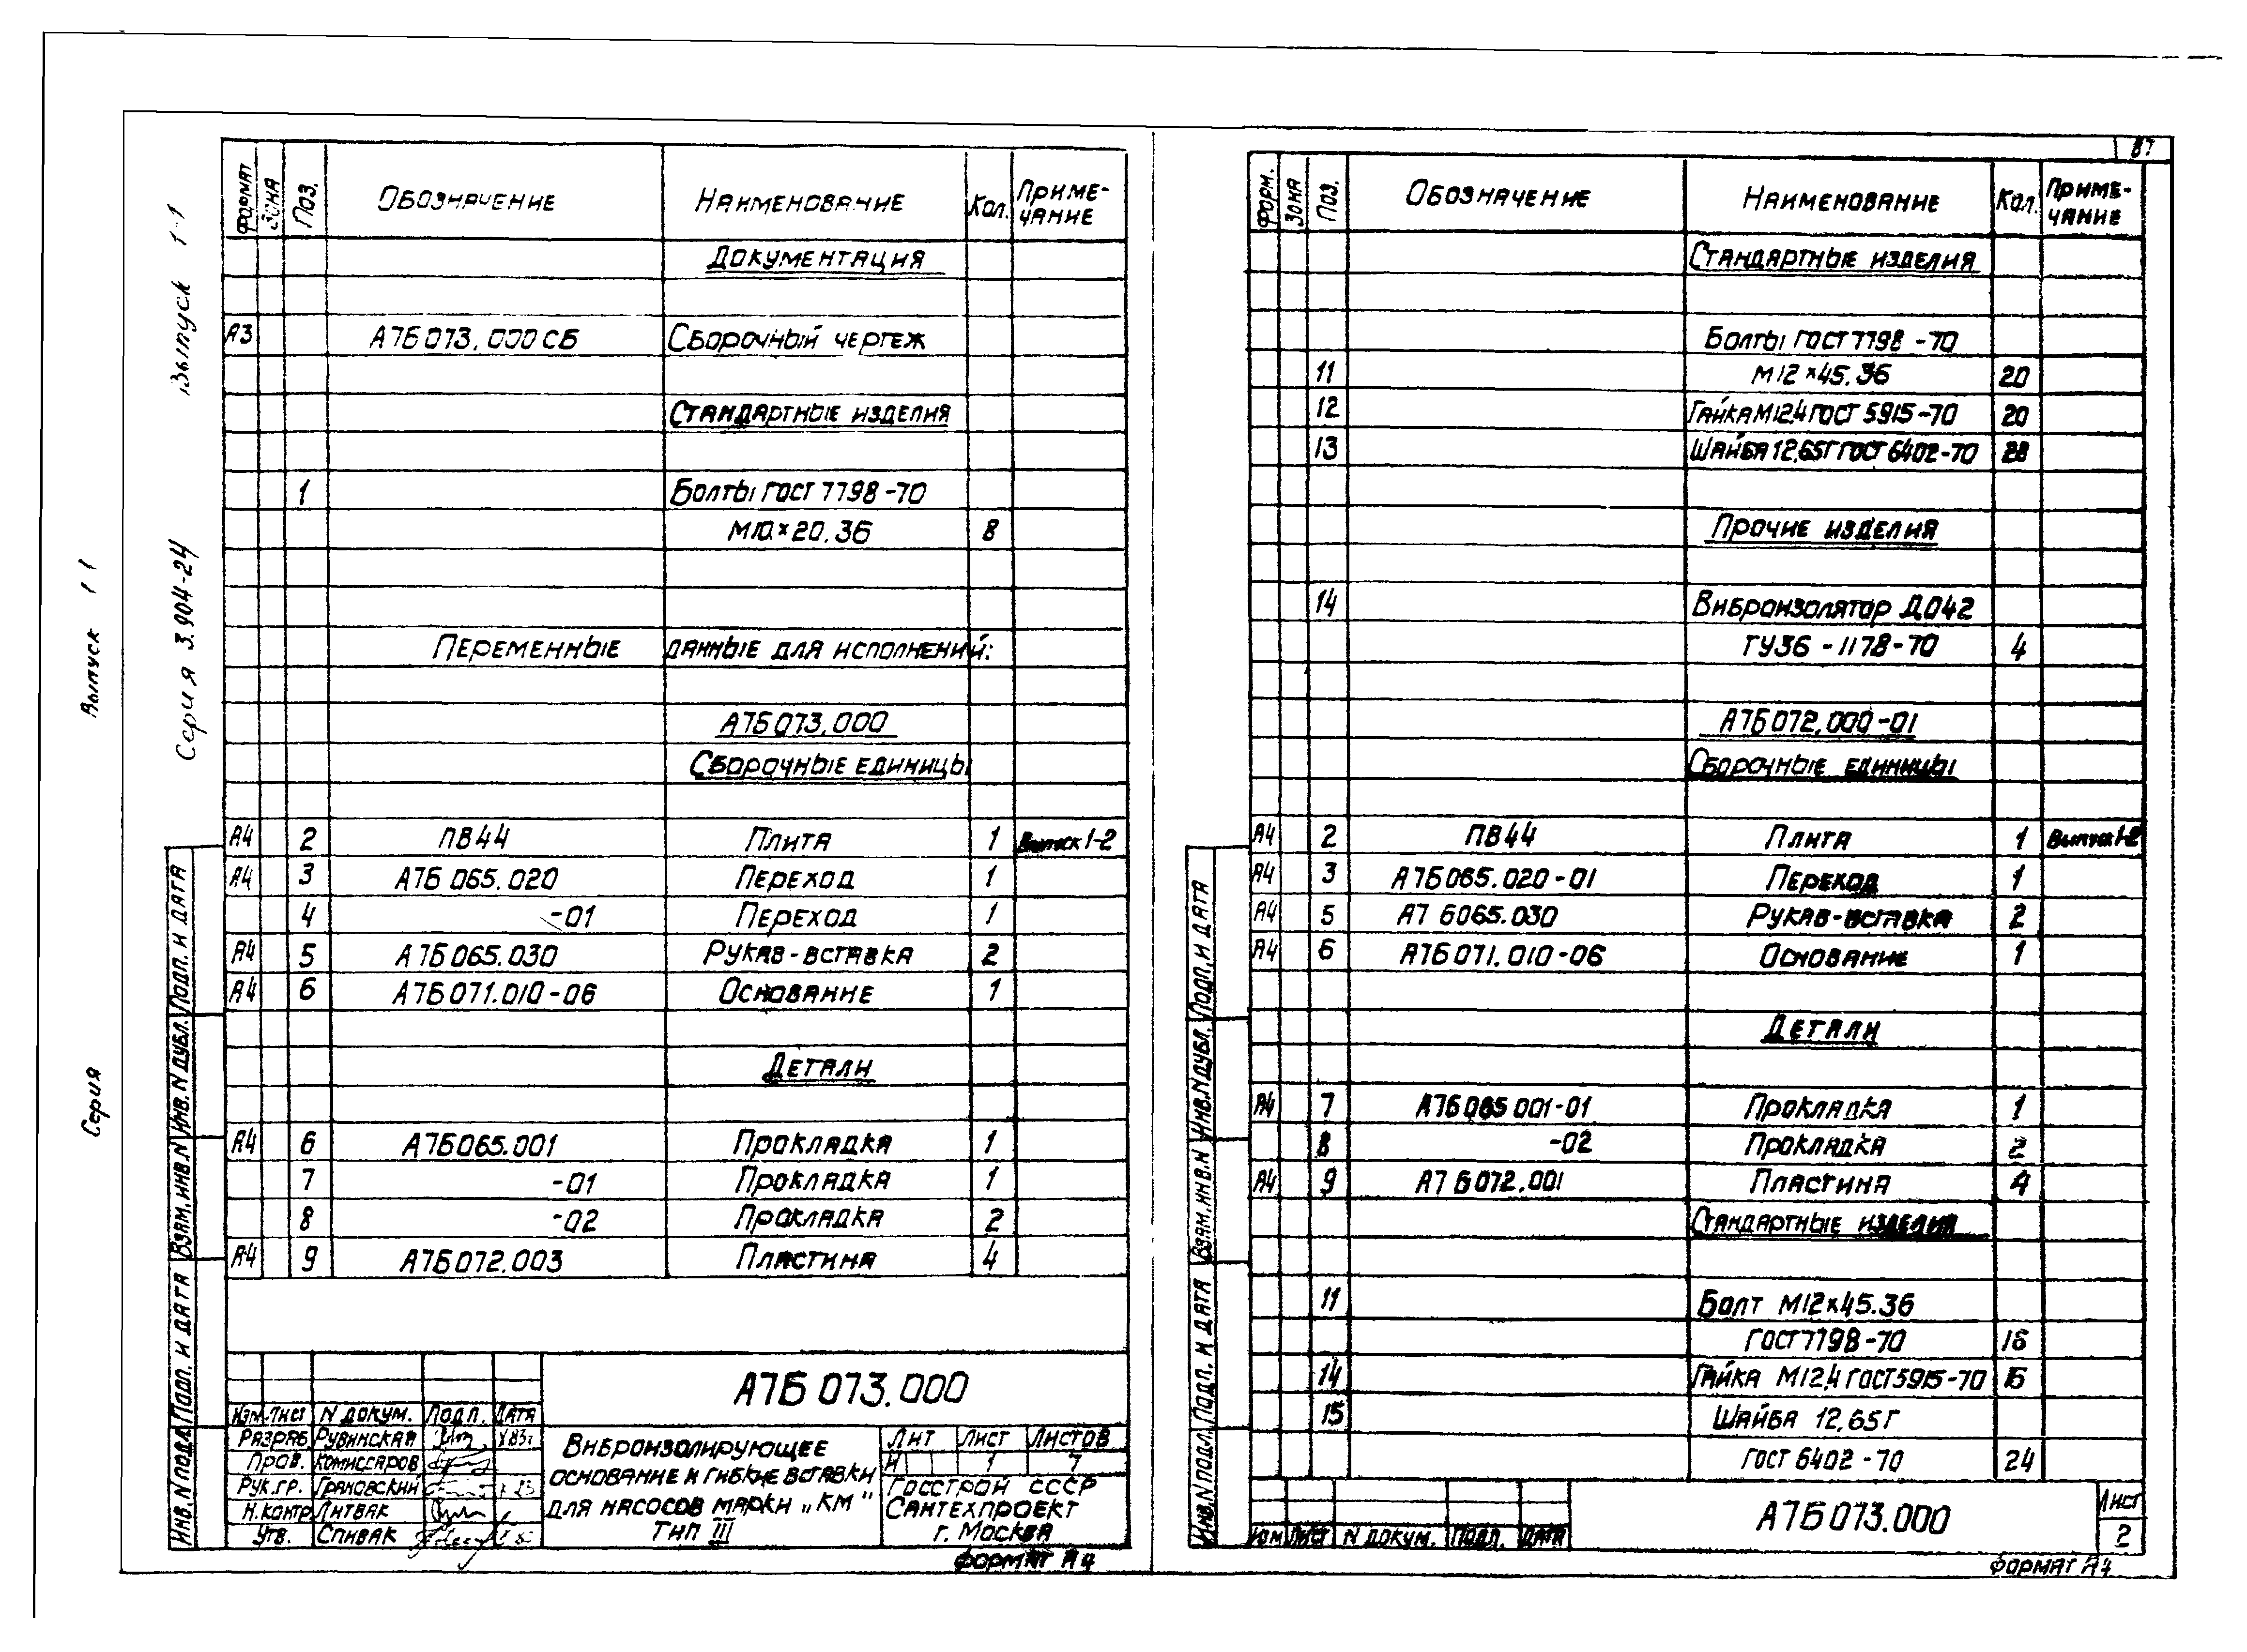 Выпуск 1-1
Серия 3.904-24
Выпуск 1 1
Серия
ФОРМАТ ЗОНА ПОЗ. ОБОЗНАЧЕНИЕ НАИМЕНОВАНИЕ Кол. ПРИМЕ-
ЧАНИЕ
ДОКУМЕНТАЦИЯ
А3 А7Б073.000СБ СБОРОЧНЫЙ ЧЕРТЕЖ
СТАНДАРТНЫЕ ИЗДЕЛИЯ
1 БОЛТЫ ГОСТ 7798-70
М10×20.36 8
ПЕРЕМЕННЫЕ ДАННЫЕ ДЛЯ ИСПОЛНЕНИЙ:
А7Б073.000
СБОРОЧНЫЕ ЕДИНИЦЫ
А4 2 ПВ44 ПЛИТА 1 Выпуск 1-2
А4 3 А7Б 065.020 ПЕРЕХОД 1
4 -01 ПЕРЕХОД 1
А4 5 А7Б065.030 РУКАВ-ВСТАВКА 2
А4 6 А7Б071.010-06 ОСНОВАНИЕ 1
ДЕТАЛИ
А4 6 А7Б065.001 ПРОКЛАДКА 1
7 -01 ПРОКЛАДКА 1
8 -02 ПРОКЛАДКА 2
А4 9 А7Б072.003 ПЛАСТИНА 4
ИНВ.N ПОДЛ. ПОДП. И ДАТА ВЗАМ.ИНВ.N ИНВ.N ДУБЛ. ПОДП. И ДАТА
А7Б 073.000
ИЗМ. ЛИСТ N ДОКУМ. ПОДП. ДАТА
РАЗРАБ. РУВИНСКАЯ
ПРОВ. КОМИССАРОВ
РУК.ГР. ГРАНОВСКИЙ
Н.КОНТР. ЛИТВАК
УТВ. СПИВАК
ВИБРОИЗОЛИРУЮЩЕЕ
ОСНОВАНИЕ И ГИБКИЕ ВСТАВКИ
ДЛЯ НАСОСОВ МАРКИ „КМ"
ТИП III
ЛИТ ЛИСТ ЛИСТОВ
И 1 7
ГОССТРОЙ СССР
САНТЕХПРОЕКТ
г. МОСКВА
ФОРМАТ А4
87
ФОРМ. ЗОНА ПОЗ. ОБОЗНАЧЕНИЕ НАИМЕНОВАНИЕ Кол. ПРИМЕ-
ЧАНИЕ
СТАНДАРТНЫЕ ИЗДЕЛИЯ
БОЛТЫ ГОСТ 7798-70
11 М12×45.36 20
12 ГАЙКА М12.4 ГОСТ 5915-70 20
13 ШАЙБА 12.65Г ГОСТ 6402-70 28
ПРОЧИЕ ИЗДЕЛИЯ
14 ВИБРОИЗОЛЯТОР ДО42
ТУ36-1178-70 4
А7Б072.000-01
СБОРОЧНЫЕ ЕДИНИЦЫ
А4 2 ПВ44 ПЛИТА 1 Выпуск 1-2
А4 3 А7Б065.020-01 ПЕРЕХОД 1
А4 5 А7 Б065.030 РУКАВ-ВСТАВКА 2
А4 6 А7Б071.010-06 ОСНОВАНИЕ 1
ДЕТАЛИ
А4 7 А7Б065 001-01 ПРОКЛАДКА 1
8 -02 ПРОКЛАДКА 2
А4 9 А7 Б072.001 ПЛАСТИНА 4
СТАНДАРТНЫЕ ИЗДЕЛИЯ
11 БОЛТ М12×45.36
ГОСТ 7798-70 16
14 ГАЙКА М12.4 ГОСТ5915-70 16
15 ШАЙБА 12.65Г
ГОСТ 6402-70 24
ИНВ.N ПОДЛ. ПОДП. И ДАТА ВЗАМ.ИНВ.N ИНВ.N ДУБЛ. ПОДП. И ДАТА
ИЗМ ЛИСТ N ДОКУМ. ПОДП. ДАТА
А7Б073.000
ЛИСТ
2
ФОРМАТ А4